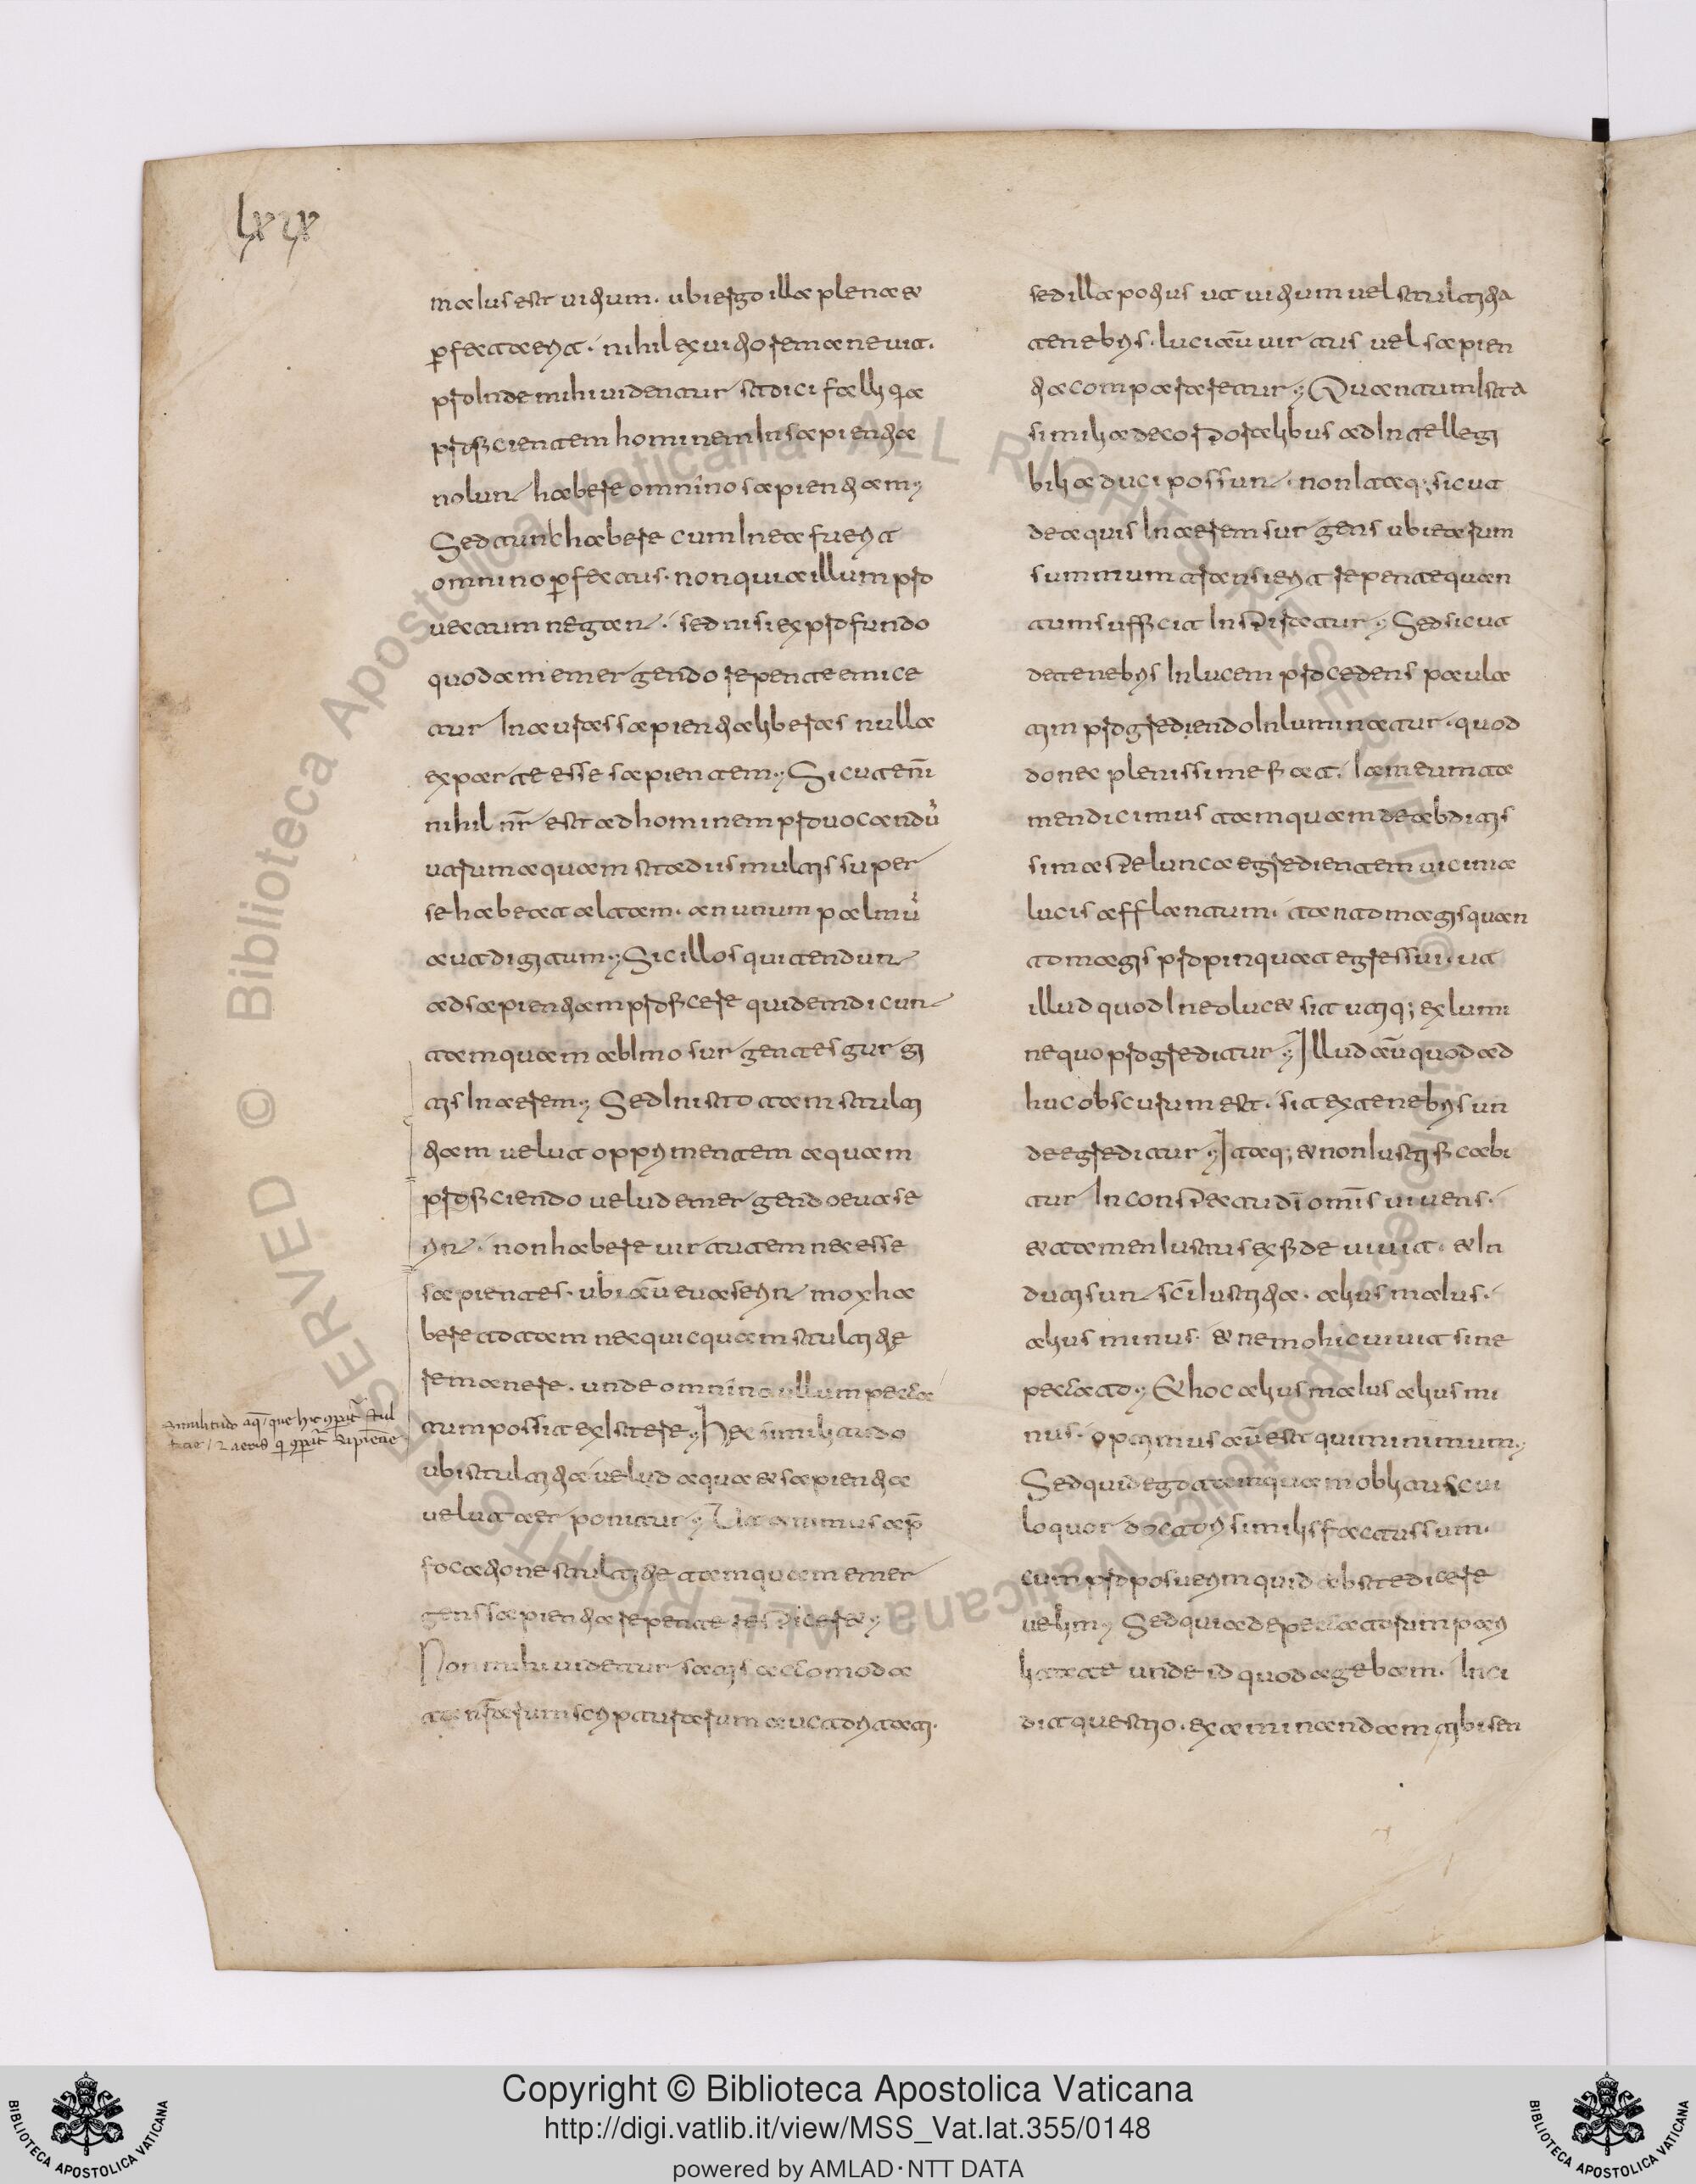 lxix
malus est uitium. ubi ergo illa plena &
p̄fecta erit. nihil ex uitio remaneuit.
proinde mihi uidentur stoici falli quia
proficientem hominem in sapientia
nolunt habere omnino sapientiam;
Sed tunc habere cum in ea fuerit
omnino p̄fectus. non quia illum pro
uectum negant. sed nisi ex profundo
quodam emergendo repente emice
tur In auras sapientia liberas nulla
ex parte esse sapientem; Sicut enī
nihil nr̄ est ad hominem prouocandū
utrum aquam stadiis multis super
se habeat altam. an unum palmū
aut digitum; Sic illos qui tendunt
ad sapientiam proficere quidem dicunt
tamquam ab imo surgentes gurgi
tis In aerem; Sed In isto tam stulti
tiam uelut opprimentem aquam
proficiendo uelud emergendo euase
rint. non habere uirtutem nec esse
sapientes. ubi aū euaserint mox ha
bere totam nec quicquam stultitie
remanere. unde omnino ullum pecca
tum possit existere; Hec similitudo
ubi stultitia uelud aqua & sapientia
uelut aer ponitur; Ut animus a p̄
focatione stultitie tamquam emer
gens sapientia repente respiceret;
Non mihi uidetur satis accomoda
ta nr̄arum scripturarum auctoritati.
similitudo aq̄ que hic 9pat̄ stul
ticie / & aeris q̄ 9pat̄ sapiētie
sed illa potius ut uitium uel stultitia
tenebris. luci aū uirtus uel sapien
tia comparetur; Quantum ista
similia de corporalibus ad Intellegi
bilia duci possunt. non itaq; sicut
de aquis In aerem surgens ubi earum
summum transierit repente quan
tum sufficit Inspiratur; Sed sicut
de tenebris In lucem procedens paula
tim progrediendo Inluminatur. quod
donec plenissime fiat. iam eum ta
men dicimus tamquam de abditis
sima spelunca egredientem uicina
lucis afflatum. tanto magis quan
to magis propinquat egressui. ut
illud quod In eo lucet sit utiq; ex lumi
ne quo progreditur; Illud aū quod ad
huc obscurum est. sit ex tenebris un
de egreditur; Itaq; & non iustifi cabi
tur In conspectu dī omīs uiuens.
& tamen iustus ex fide uiuit. & In
duti sunt scī iustitia. alius malus.
alius minus. & nemo hic uiuit sine
peccato; & hoc alius malus alius mi
nus. optimus aū est qui minimum;
Sed quid ego tamquam oblitus cui
loquor doctori similis factus sum.
cum proposuerim quid abs te dicere
uelim; Sed quia de peccatorum pari
litate unde id quod agebam. Inci
dit questio. examinandam tibi sen
Copyright © Biblioteca Apostolica Vaticana
http://digi.vatlib.it/view/MSS_Vat.lat.355/0148
powered by AMLAD·NTT DATA